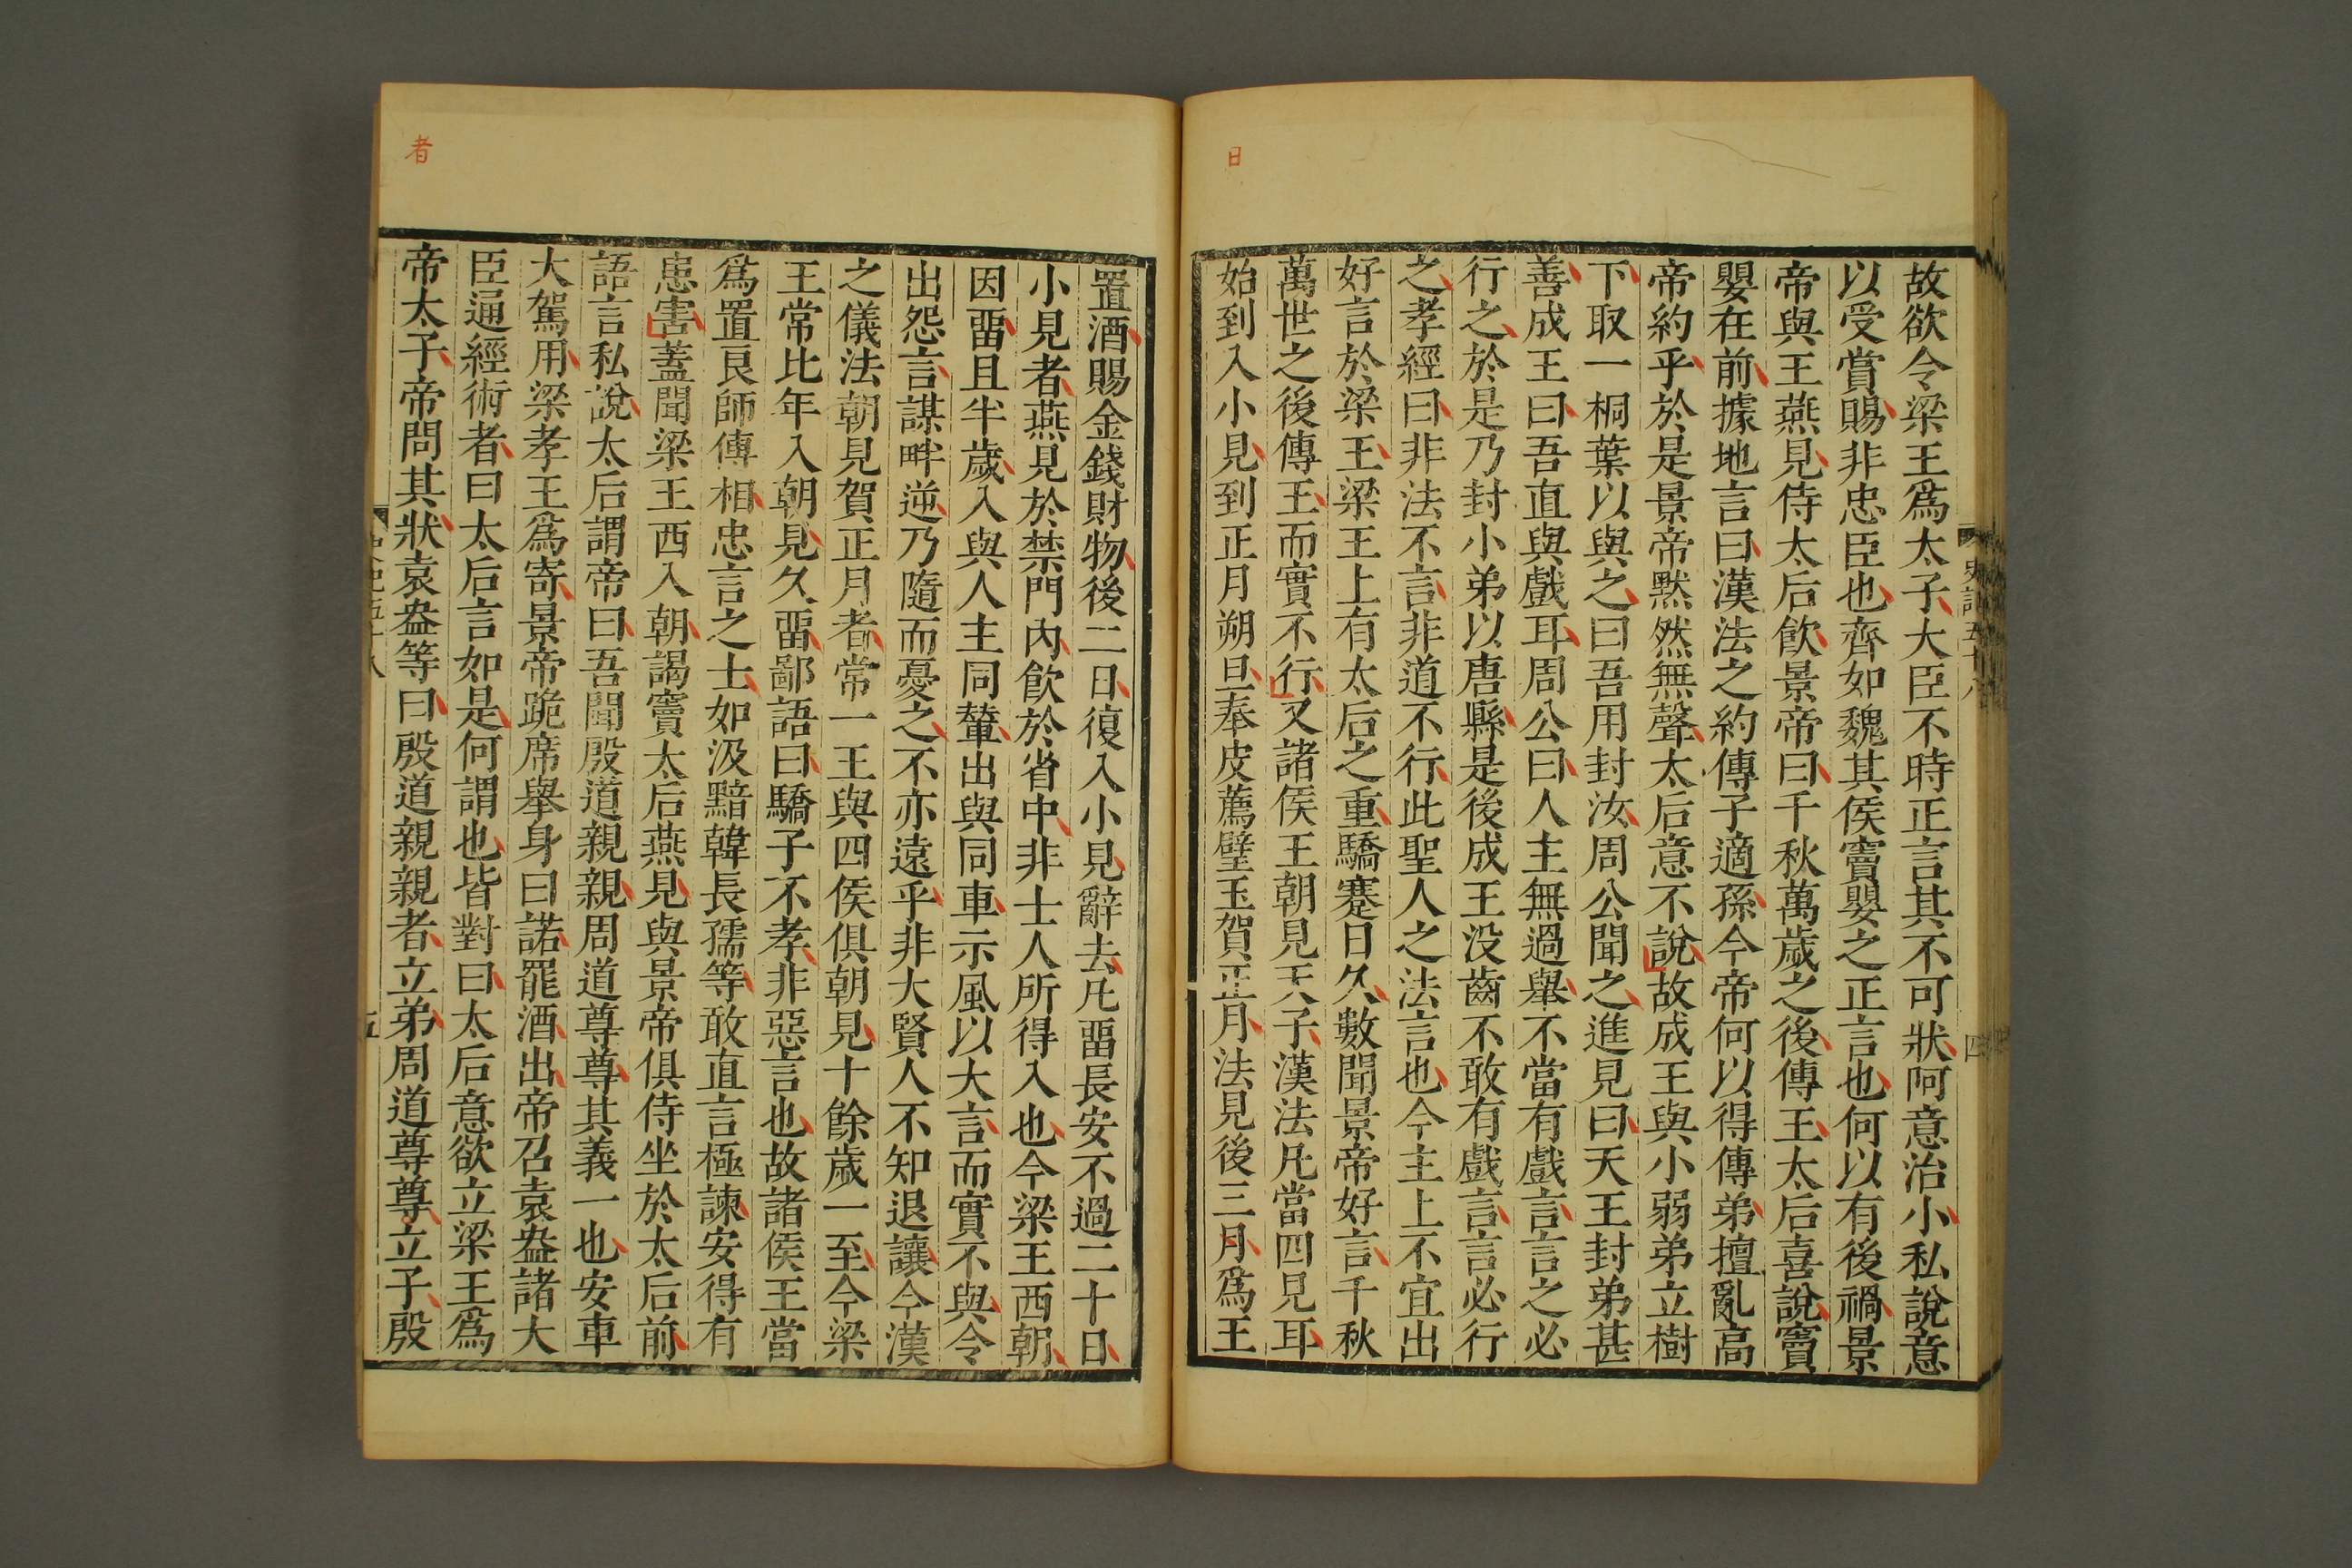 故欲令梁王爲太子大臣不時正言其不可狀阿意治小私說意
以受賞賜非忠臣也齊如魏其侯竇嬰之正言也何以有後禍景
帝與王燕見侍太后飮景帝曰千秋萬歲之後傳王太后喜說竇
嬰在前據地言曰漢法之約傳子適孫今帝何以得傳弟擅亂高
帝約乎於是景帝默然無聲太后意不說故成王與小弱弟立樹
下取一桐葉以與之曰吾用封汝周公聞之進見曰天王封弟甚
善成王曰吾直與戲耳周公曰人主無過舉不當有戲言言之必
行之於是乃封小弟以唐縣是後成王没齒不敢有戲言言必行
之孝經曰非法不言非道不行此聖人之法言也今主上不宜出
好言於梁王梁王上有太后之重驕蹇日久數聞景帝好言千秋
萬世之後傳王而實不行又諸侯王朝見天子漢法凡當四見耳
始到入小見到正月朔旦奉皮薦璧玉賀正月法見後三月爲王
日
史記五十八
四
置酒賜金錢財物後二日復入小見辭去凡畱長安不過二十日
小見者燕見於禁門内飮於省中非士人所得入也今梁王西朝
因畱且半歲入與人主同輦出與同車示風以大言而實不與令
出怨言謀畔逆乃隨而憂之不亦遠乎非大賢人不知退讓今漢
之儀法朝見賀正月者常一王與四侯俱朝見十餘歲一至今梁
王常比年入朝見久畱鄙語曰驕子不孝非惡言也故諸侯王當
爲置良師傅相忠言之士如汲黯韓長孺等敢直言極諫安得有
患害蓋聞梁王西入朝謁竇太后燕見與景帝俱侍坐於太后前
語言私說太后謂帝曰吾聞殷道親親周道尊尊其義一也安車
大駕用梁孝王爲寄景帝跪席舉身曰諾罷酒出帝召袁盎諸大
臣通經術者曰太后言如是何謂也皆對曰太后意欲立梁王爲
帝太子帝問其狀袁盎等曰殷道親親者立弟周道尊尊立子殷
者
史記五十八
五